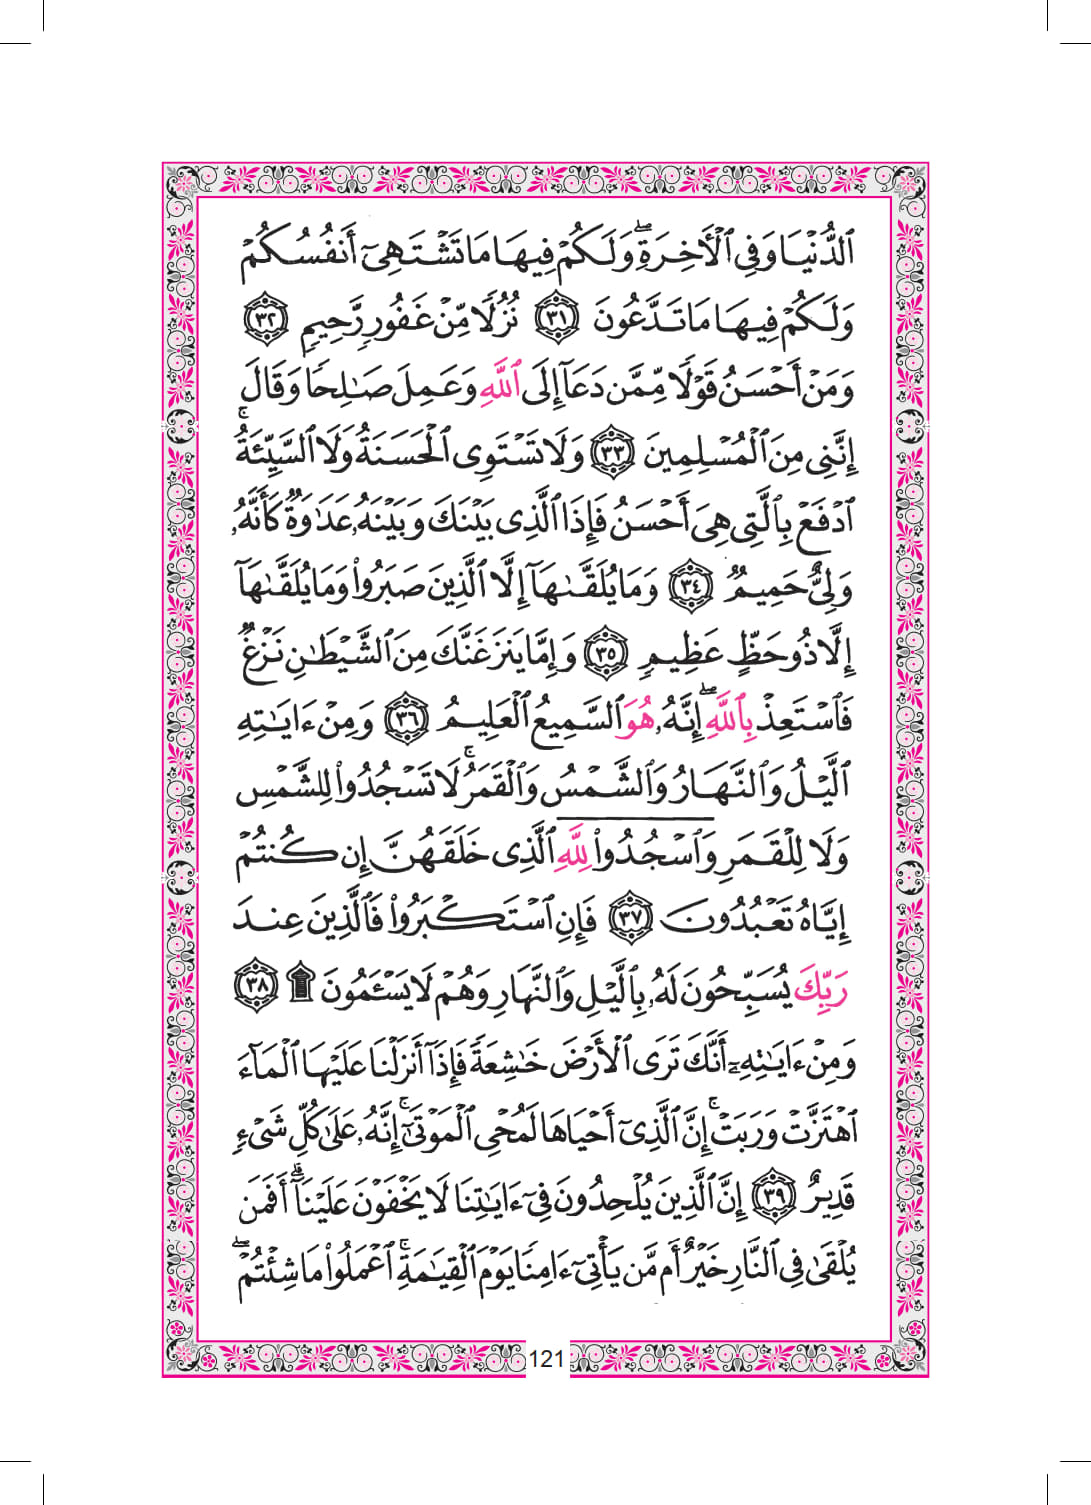 ٱلدُّنْيَا وَفِي ٱلْأَخِرَةِ ۖ وَلَكُمْ فِيهَا مَا تَشْتَهِىٓ أَنفُسُكُمْ
وَلَكُمْ فِيهَا مَا تَدَّعُونَ ٣١ نُزُلًا مِّنْ غَفُورٍ رَّحِيمٍ ٣٢
وَمَنْ أَحْسَنُ قَوْلًا مِّمَّن دَعَآ إِلَى ٱللَّهِ وَعَمِلَ صَٰلِحًا وَقَالَ
إِنَّنِى مِنَ ٱلْمُسْلِمِينَ ٣٣ وَلَا تَسْتَوِى ٱلْحَسَنَةُ وَلَا ٱلسَّيِّئَةُ ۚ
ٱدْفَعْ بِٱلَّتِى هِىَ أَحْسَنُ فَإِذَا ٱلَّذِى بَيْنَكَ وَبَيْنَهُۥ عَدَٰوَةٌ كَأَنَّهُۥ
وَلِىٌّ حَمِيمٌ ٣٤ وَمَا يُلَقَّىٰهَآ إِلَّا ٱلَّذِينَ صَبَرُوا۟ وَمَا يُلَقَّىٰهَآ
إِلَّا ذُو حَظٍّ عَظِيمٍ ٣٥ وَإِمَّا يَنزَغَنَّكَ مِنَ ٱلشَّيْطَٰنِ نَزْغٌ
فَٱسْتَعِذْ بِٱللَّهِ ۖ إِنَّهُۥ هُوَ ٱلسَّمِيعُ ٱلْعَلِيمُ ٣٦ وَمِنْ ءَايَٰتِهِ
ٱلَّيْلُ وَٱلنَّهَارُ وَٱلشَّمْسُ وَٱلْقَمَرُ ۚ لَا تَسْجُدُوا۟ لِلشَّمْسِ
وَلَا لِلْقَمَرِ وَٱسْجُدُوا۟ لِلَّهِ ٱلَّذِى خَلَقَهُنَّ إِن كُنتُمْ
إِيَّاهُ تَعْبُدُونَ ٣٧ فَإِنِ ٱسْتَكْبَرُوا۟ فَٱلَّذِينَ عِندَ
رَبِّكَ يُسَبِّحُونَ لَهُۥ بِٱلَّيْلِ وَٱلنَّهَارِ وَهُمْ لَا يَسْـَٔمُونَ ۩ ٣٨
وَمِنْ ءَايَٰتِهِۦٓ أَنَّكَ تَرَى ٱلْأَرْضَ خَٰشِعَةً فَإِذَآ أَنزَلْنَا عَلَيْهَا ٱلْمَآءَ
ٱهْتَزَّتْ وَرَبَتْ ۚ إِنَّ ٱلَّذِىٓ أَحْيَاهَا لَمُحْىِ ٱلْمَوْتَىٰٓ ۚ إِنَّهُۥ عَلَىٰ كُلِّ شَىْءٍ
قَدِيرٌ ٣٩ إِنَّ ٱلَّذِينَ يُلْحِدُونَ فِىٓ ءَايَٰتِنَا لَا يَخْفَوْنَ عَلَيْنَآ ۗ أَفَمَن
يُلْقَىٰ فِى ٱلنَّارِ خَيْرٌ أَم مَّن يَأْتِىٓ ءَامِنًا يَوْمَ ٱلْقِيَٰمَةِ ۚ ٱعْمَلُوا۟ مَا شِئْتُمْ ۖ
121